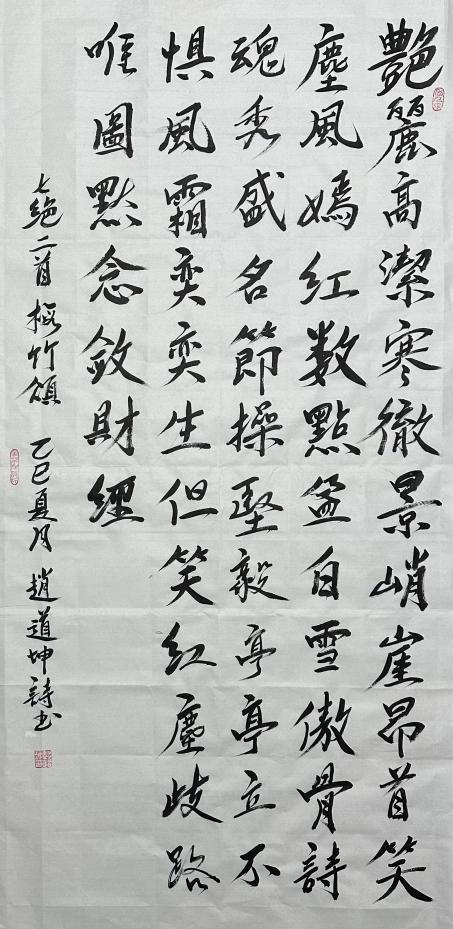 艷麗高潔寒徹景峭崖昂首笑
塵風嫣紅数點盈白雪傲骨詩
魂秀盛名節操堅毅亭亭立不
惧風霜奕奕生但笑紅塵歧路
唯圖點念斂財經
七绝二首 梅竹頌 乙巳夏月 趙道坤詩书